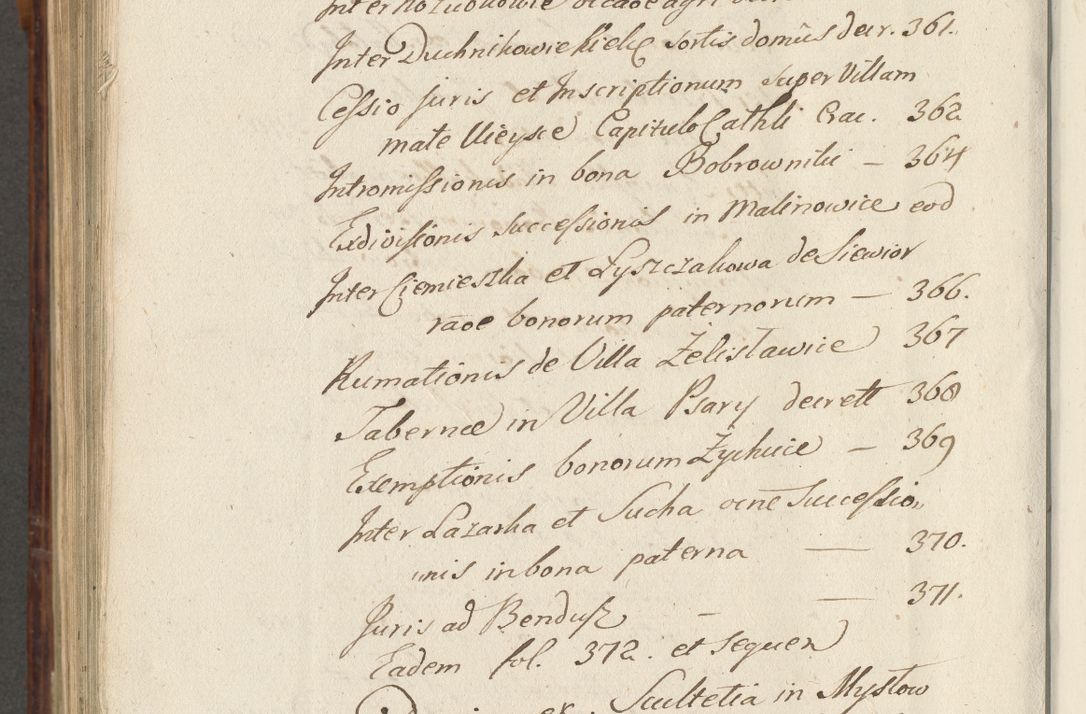 Inter Duchnikowie Kielc sortis domûs decr. 361.
Cessio Juris et Inscriptionum super Villam
mate Uieysce Capitulo Cathli Crac. 362
Intromissionis in bona Bobrowniki — 364
Exdivisionis successionis in Malinowice eod
Inter Ciemieszka et Łyszczakowa de Siewior
raõe bonorum paternorum — 366.
Rumationis de Villa Żelisławice 367
Tabernæ in Villa Psary decrett 368
Exemptionis bonorum Żychcice — 369
Inter Lazarka et Sucha õcne Successio„
„nis in bona paterna — 370.
Juris ad Bendusz — — 371.
Eadem fol. 372. et sequen
ex Scultetia in Mysłow